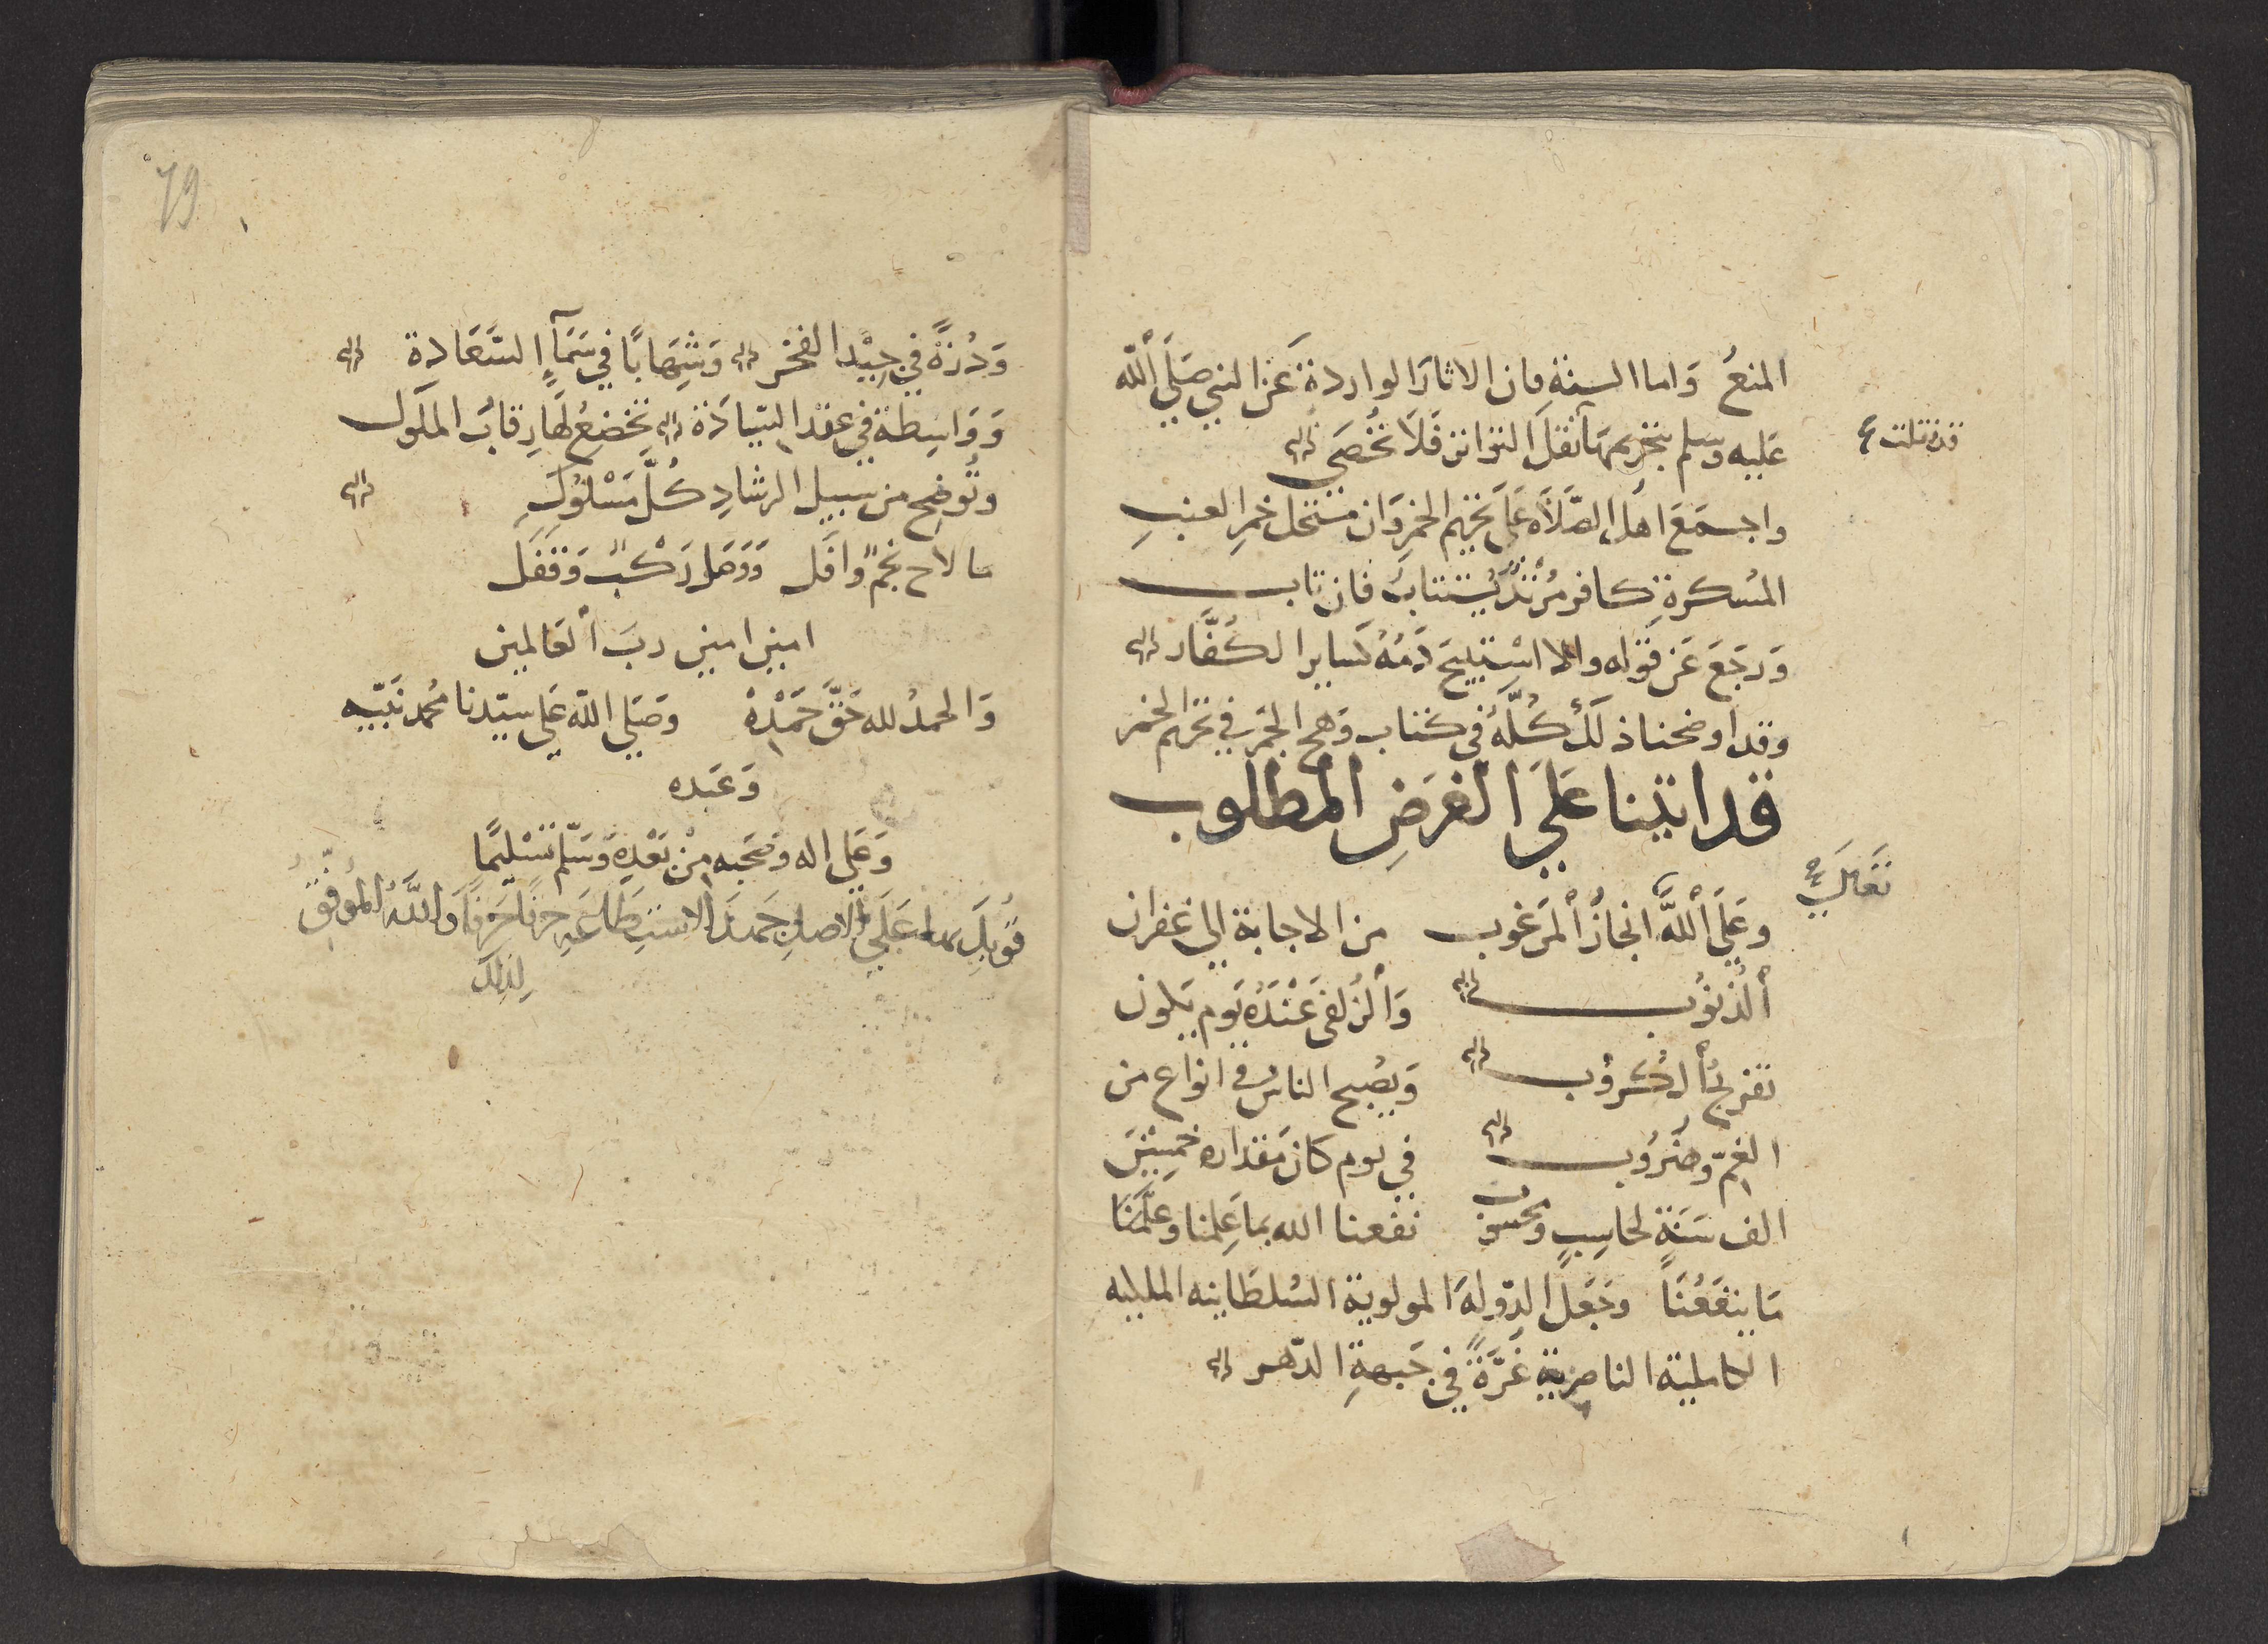 المنعُ وَاما السنةِ فان الاثارَ الواردة عَن النبي صَلَّى اللّٰه
عَليه وسلم بتحريمهَا نقلَ التواتر فَلَا تُحصَى
قد نقلت
واجمَعَ اهل الصَّلَاه عَلى تحريم الخمر وَان مستحل خمرِ العنبِ
المسكرةِ كافر مُرْتدٌ يُستتابُ فان تاب
وَرجَعَ عَن قوله والا اسْتبيحَ دَمُهُ كسَاير الكُفَّار
وقد اوضحنا ذلكَ كُلَّهُ فى كتاب وَهج الجمر في تحريم الخمر
قد اتينا عَلَي الغَرَضِ المطلوب
تَعَالَى
وعَلى اللَّه انجازُ المَرغوب من الاجابة الي غفران
الذنوُب وَالزُلفى عنْدَهُ يَوم يَكون
تفريجُ الكُرُوب وَيصُبح الناسُ في انواع من
الغمّ وضُرُوب في يوم كَان مقداره خمسِينَ
الف سَنَةٍ لحاسِبٍ ومحسوب نفعنا الله بما عَلِمنا وعلَّمنَا
مَا ينفَعُنَا وجَعَلَ الدّولةَ المولوية السُلطَانيه الملكيه
الكاملية الناصرية غُرَّةً في جَبهةِ الدّهر
79
وَدُرَّةً في جِيْد الفخر وَشِهَابًا في سَمَآءِ السَّعَادة
وَوَاسِطةً في عقد السّيادَة تخضعُ لهَا رِقابُ الملُوك
وتُوضح من سبيل الرشادِ كُلَّ مَسْلُوُكٍ
ما لاح نجمٌ وافَل وَوَصَل رَكْبٌ وَقفَل
امين امين ربَ العَالمين
وَالحمدُ لله حَقَّ حَمْدِهْ وصَلي اللّٰه عَلي سيّدنا مُحمد نَبيّه
وَعَبده
وَعَلي اله وصَحبه مِنْ بَعْدِه وَسَلّم تَسْليمًا
قُوبِلَ عَلَي الاصلِ جَهدَ الاستِطَاعَهِ حرفًا حَرفًا وَاللَّهُ الموُفّقُ
لِذلِكَ